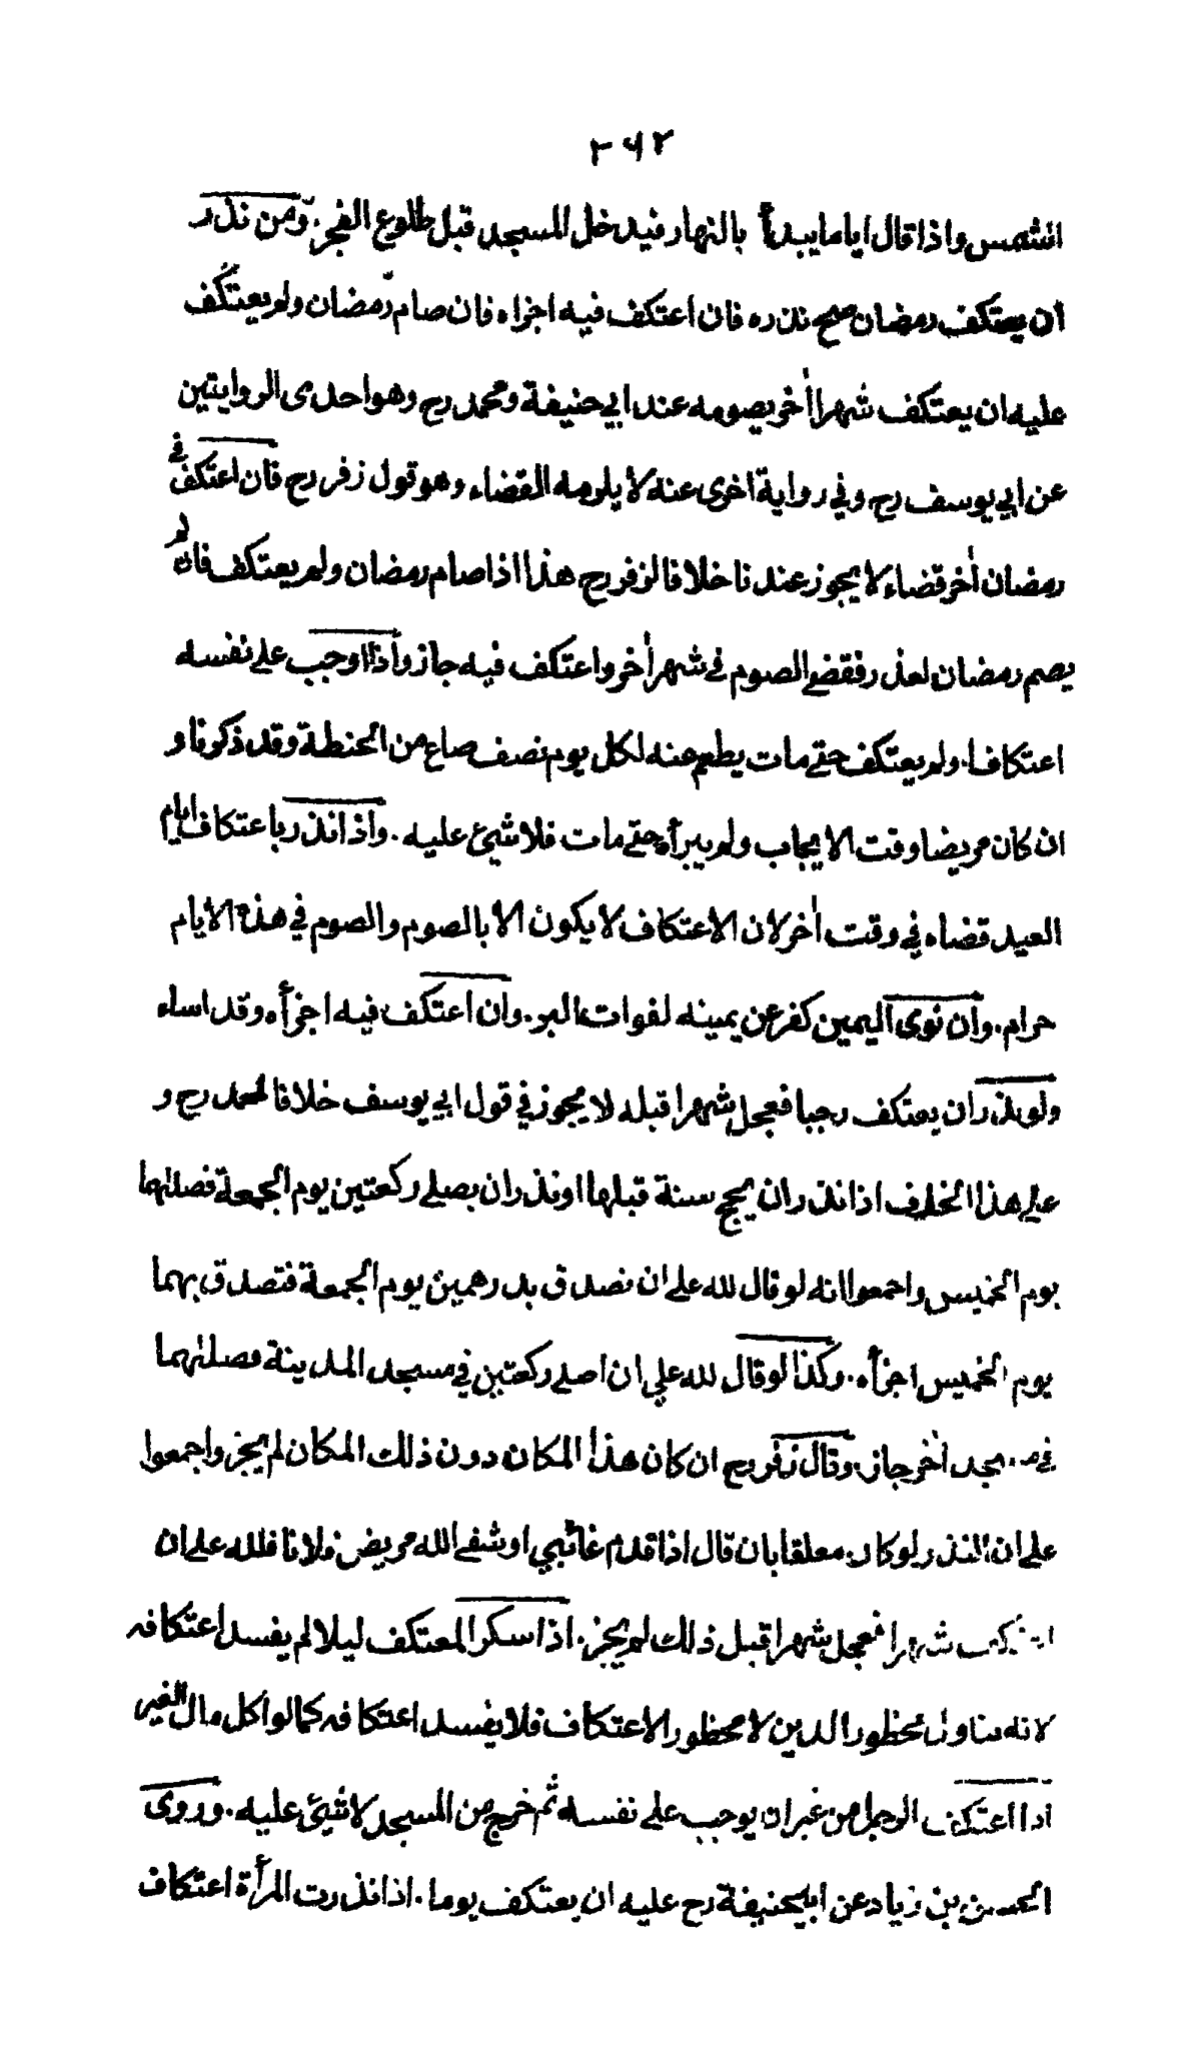 ٢٦٢
الشمس واذا قال اياما يبدأ بالنهار فيدخل المسجد قبل طلوع الفجر. ومن نذر
ان يعتكف رمضان صح نذره فان اعتكف فيه اجزاه فان صام رمضان ولم يعتكف
عليه ان يعتكف شهرا أخر بصومه عند ابي حنيفة ومحمد رح وهو احدى الروايتين
عن ابي يوسف رح وفي رواية اخرى عنه لا يلزمه القضاء وهو قول زفر رح فان اعتكف في
رمضان أخر قضاء لا يجوز عندنا خلافا لزفر رح هذا اذا صام رمضان ولم يعتكف فان لم
يصم رمضان لعذر فقضى الصوم في شهر أخر واعتكف فيه جاز واذا اوجب على نفسه
اعتكافا. ولم يعتكف حتى مات يطعم عنه لكل يوم نصف صاع من الحنطة وقد ذكرنا و
ان كان مريضا وقت الايجاب ولم يبرأ حتى مات فلا شيئ عليه. واذا نذر باعتكاف ايام
العيد قضاه في وقت أخر لان الاعتكاف لا يكون الا بالصوم والصوم في هذه الايام
حرام. وان نوى اليمين كفر عن يمينه لفوات البر. وان اعتكف فيه اجزأه وقد اساء
ولو نذر ان يعتكف رجبا فعجل شهرا قبله لا يجوز في قول ابي يوسف خلافا لمحمد رح و
على هذا الخلاف اذا نذر ان يحج سنة قبلها او نذر ان يصلى ركعتين يوم الجمعة فصلاها
يوم الخميس واجمعوا انه لو قال لله على ان نصدق بدرهمين يوم الجمعة فتصدق بهما
يوم الخميس اجزأه. وكذا لو قال لله علي ان اصلى ركعتين في مسجد المدينة فصلاهما
في مسجد أخر جاز. وقال زفر رح ان كان هذا المكان دون ذلك المكان لم يجز واجمعوا
على ان النذر لو كان معلقا بان قال اذا قدم غائبي او شفى الله مريض فلانا فلله على ان
اعتكف شهرا فعجل شهرا قبل ذلك لم يجز. اذا سكر المعتكف ليلا لم يفسد اعتكافه
لانه تناول محظور الدين لا محظور الاعتكاف فلا يفسد اعتكافه كما لو اكل مال الغير
اذا اعتكف الرجل من غير ان يوجب على نفسه ثم خرج من المسجد لا شيئ عليه. وروى
الحسن بن زياد عن ابيحنيفة رح عليه ان يعتكف يوما. اذا نذرت المرأة اعتكاف